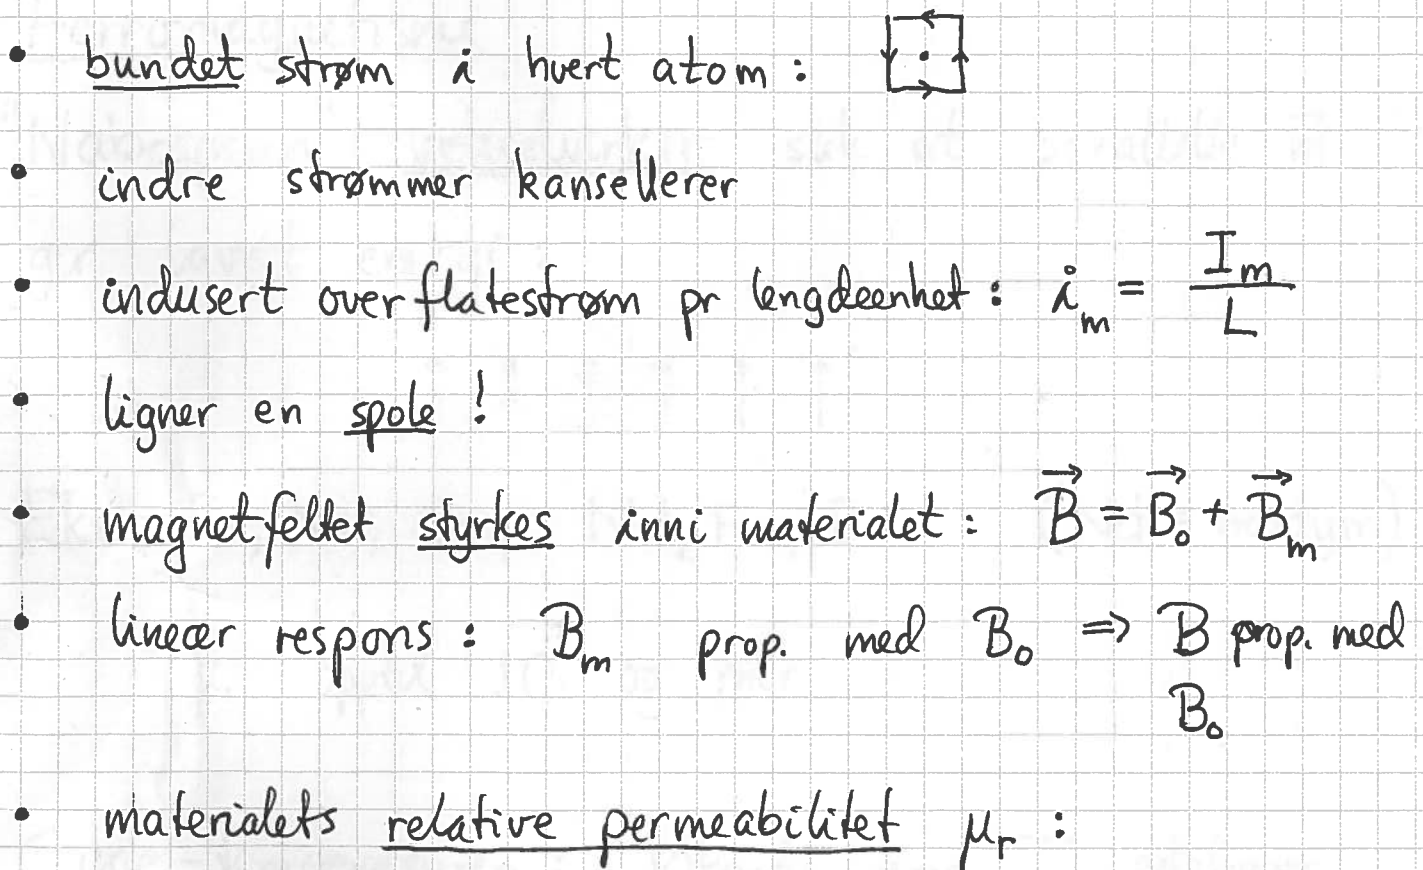 • bundet strøm i hvert atom:
• indre strømmer kansellerer
• indusert overflatestrøm pr lengdeenhet: i_m = I_m / L
• ligner en spole!
• magnetfeltet styrkes inni materialet: B⃗ = B⃗₀ + B⃗_m
• lineær respons: B_m prop. med B₀ ⇒ B prop. med
B₀
• materialets relative permeabilitet μ_r: